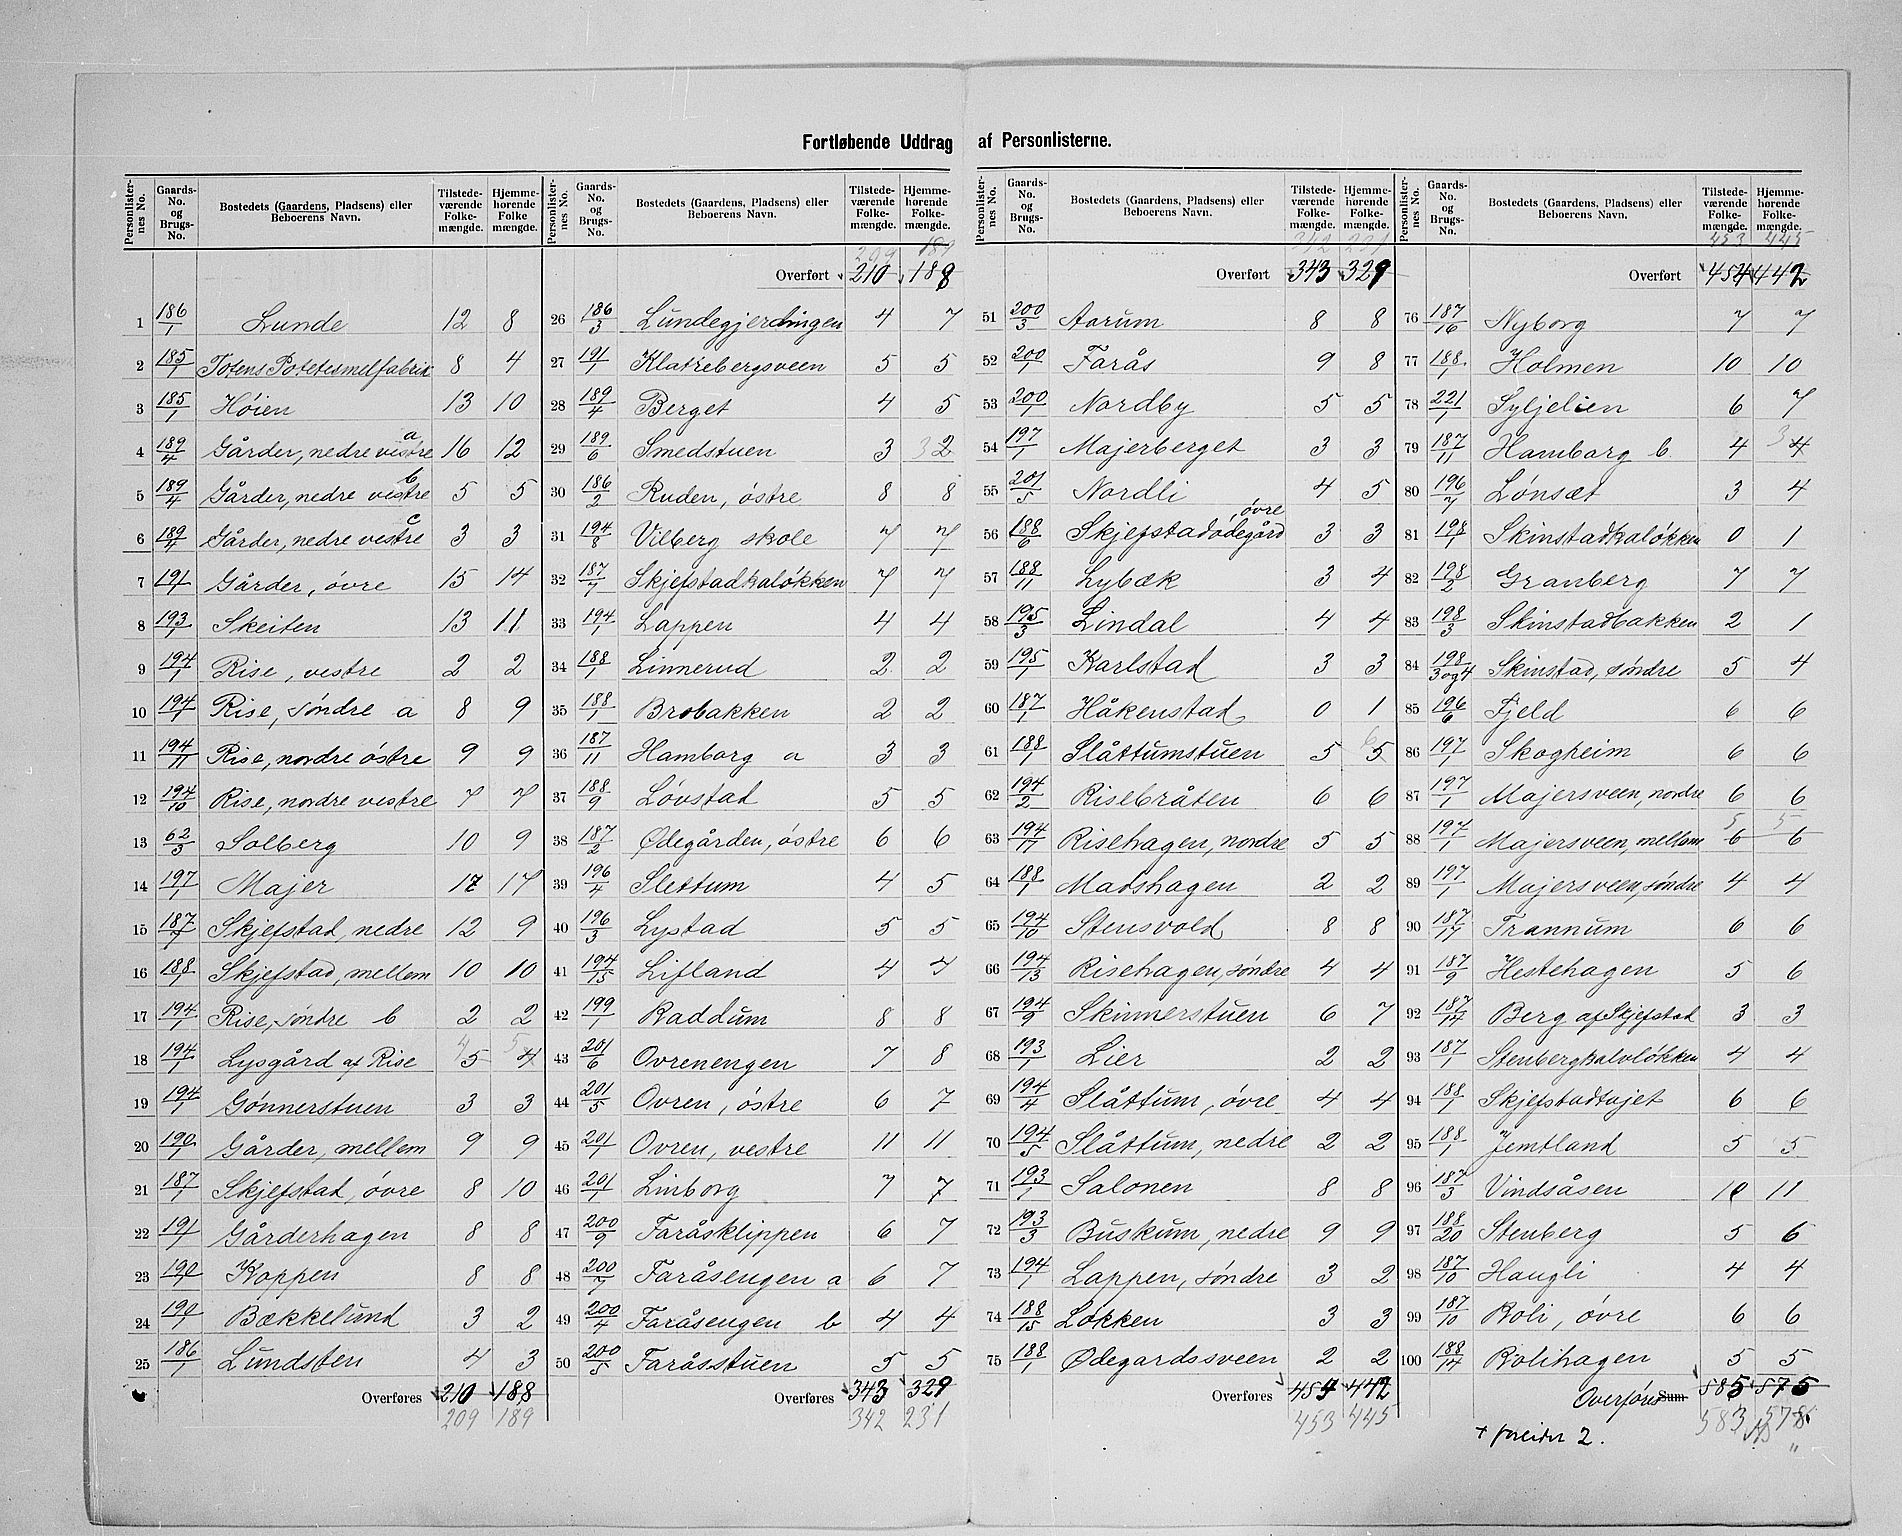 Fortløbende Uddrag af Personlisterne.
Personlister-nes No. | Gaards-No. og Brugs-No. | Bostedets (Gaardens, Pladsens) eller Beboerens Navn. | Tilstede-værende Folke-mængde. | Hjemme-hørende Folke mængde.
1 186/1 Lunde 12 8
2 185/1 Totens Potetesmelfabrik 8 4
3 185/1 Høien 13 10
4 189/4 Gårder, nedre vestre a 16 12
5 189/4 Gårder, nedre vestre b 5 5
6 189/4 Gårder, nedre vestre c 3 3
7 191/1 Gårder, óvre 15 14
8 193/1 Skeiten 13 11
9 194/1 Rise, vestre 2 2
10 194/1 Rise, søndre a 8 9
11 194/11 Rise, nordre østre 9 9
12 194/10 Rise, nordre vestre 7 7
13 62/3 Solberg 10 9
14 197/1 Majer 17 17
15 187/7 Skjefstad, nedre 12 9
16 188/1 Skjefstad, mellem 10 10
17 194/1 Rise, søndre b 2 2
18 194/1 Lysgård af Rise 4 5 5 4
19 194/1 Gønnerstuen 3 3
20 190/1 Gårder, mellem 9 9
21 187/1 Skjefstad, óvre 8 10
22 191/1 Gårderhagen 8 8
23 190/1 Koppen 8 8
24 190/1 Bækkelund 3 2
25 186/1 Lundsten 4 3
Overføres 210 188
209 189
Personlister-nes No. | Gaards-No. og Brugs-No. | Bostedets (Gaardens, Pladsens) eller Beboerens Navn. | Tilstede-værende Folke-mængde. | Hjemme-hørende Folke-mængde.
209 189
Overført 210 188
26 186/3 Lundegjerdingen 4 7
27 191/1 Klatrebergsveen 5 5
28 189/4 Berget 4 5
29 189/6 Smedstuen 3 3 2
30 186/2 Ruden, østre 8 8
31 194/8 Vilberg skole 7 7
32 187/7 Skjefstadkaløkken 7 7
33 194/1 Lappen 4 4
34 188/1 Linnerud 2 2
35 188/1 Brobakken 2 2
36 187/11 Hamborg a 3 3
37 188/9 Lóvstad 5 5
38 187/2 Ødegården, østre 6 6
39 196/4 Slettum 4 5
40 196/3 Lystad 5 5
41 194/15 Lifland 4 4
42 199/1 Raddum 8 8
43 201/6 Ovrenengen 7 8
44 201/5 Ovren, østre 6 7
45 201/1 Ovren, vestre 11 11
46 201/1 Linborg 7 7
47 200/9 Faråsklippen 6 7
48 200/7 Faråsengen a 6 7
49 200/4 Faråsengen b 4 4
50 200/5 Faråsstuen 5 5
Overføres 343 329
342 231
Personlister-nes No. | Gaards-No. og Brugs-No. | Bostedets (Gaardens, Pladsens) eller Beboerens Navn. | Tilstede-værende Folke-mængde. | Hjemme-hørende Folke-mængde.
342 231
Overført 343 329
51 200/3 Aarum 8 8
52 200/1 Farås 9 8
53 200/1 Nordby 5 5
54 197/1 Majerberget 3 3
55 201/5 Nordli 4 5
56 188/6 Skjefstadødegård óvre 3 3
57 188/11 Lybæk 3 4
58 195/3 Lindal 4 4
59 195/1 Karlstad 3 3
60 187/1 Håkenstad 0 1
61 188/1 Slåttumstuen 5 6 5
62 194/2 Risebråten 6 6
63 194/17 Risehagen, nordre 5 5
64 188/1 Madshagen 2 2
65 194/10 Stensvold 8 8
66 194/13 Risehagen, søndre 4 4
67 194/9 Skinnerstuen 6 7
68 193/1 Lier 2 2
69 194/4 Slåttum, óvre 4 4
70 194/5 Slåttum, nedre 2 2
71 193/1 Salonen 8 8
72 193/3 Buskum, nedre 9 9
73 194/1 Lappen, søndre 3 2
74 188/15 Løkken 3 3
75 188/1 Ødegardssveen 2 2
Overføres 454 442
453 445
Personlister-nes No. | Gaards-No. og Brugs-No. | Bostedets (Gaardens, Pladsens) eller Beboerens Navn. | Tilstede-værende Folke-mængde. | Hjemme-hørende Folke-mængde.
453 445
Overført 454 442
76 187/16 Nyborg 7 7
77 188/1 Holmen 10 10
78 221/1 Syljelien 6 7
79 187/11 Hamborg b. 4 3 4
80 196/7 Lønsæt 3 4
81 198/1 Skinstadkaløkken 0 1
82 198/2 Granberg 7 7
83 198/3 Skinstadbakken 2 1
84 198/3 og 4 Skinstad, søndre 5 4
85 196/6 Fjeld 6 6
86 197/1 Skogheim 6 6
87 197/1 Majersveen, nordre 6 6
88 197/1 Majersveen, mellem 5 6 5 6
89 197/1 Majersveen, søndre 4 4
90 187/17 Trannum 6 6
91 187/9 Hestehagen 5 6
92 187/14 Berg af Skjefstad 3 3
93 187/1 Stenbergkalvløkken 4 4
94 188/1 Skjefstadtajet 6 6
95 188/1 Jemtland 5 5
96 187/3 Vindsåsen 10 11
97 188/20 Stenberg 5 6
98 187/10 Haugli 4 4
99 187/10 Roli, øvre 6 6
100 188/14 Rolihagen 5 5
Overføres Sum 585 575
583 578